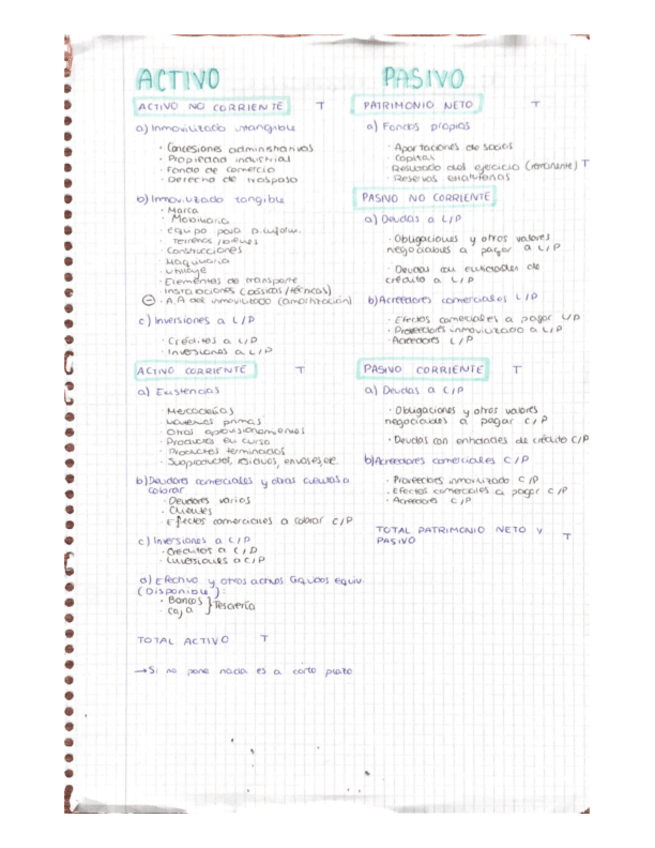 ACTIVO
ACTIVO NO CORRIENTE T
a) Inmovilizado intangible
· Concesiones administrativas
· Propiedad industrial
· Fondo de comercio
· Derecho de traspaso
b) Inmovilizado tangible
· Marca
· Mobiliario
· equipo para p.inform.
· Terrenos / bienes
· Construcciones
· Maquinaria
· Utillaje
· Elementos de transporte
· Instalaciones (básicas / técnicas)
⊖ · A.A del inmovilizado (amortización)
c) Inversiones a L/P
· Créditos a L/P
· Inversiones a L/P
ACTIVO CORRIENTE T
a) Existencias
· Mercaderías
· Materias primas
· Otros aprovisionamientos
· Productos en curso
· Productos terminados
· Subproductos, residuos, envases, etc
b) Deudores comerciales y otras cuentas a
cobrar
· Deudores varios
· Clientes
· Efectos comerciales a cobrar C/P
c) Inversiones a C/P
· Créditos a C/P
· Inversiones a C/P
d) Efectivo y otros activos líquidos equiv.
(Disponible):
· Bancos } Tesorería
· Caja
TOTAL ACTIVO T
→ Si no pone nada es a corto plazo
PASIVO
PATRIMONIO NETO T
a) Fondos propios
· Aportaciones de socios
· Capital
· Resultado del ejercicio (remanente) T
· Reservas
PASIVO NO CORRIENTE
a) Deudas a L/P
· Obligaciones y otros valores
negociables a pagar a L/P
· Deudas con entidades de
crédito a L/P
b) Acreedores comerciales L/P
· Efectos comerciales a pagar L/P
· Proveedores inmovilizado a L/P
· Acreedores L/P
PASIVO CORRIENTE T
a) Deudas a C/P
· Obligaciones y otros valores
negociables a pagar C/P
· Deudas con entidades de crédito C/P
b) Acreedores comerciales C/P
· Proveedores inmovilizado C/P
· Efectos comerciales a pagar C/P
· Acreedores C/P
TOTAL PATRIMONIO NETO Y
PASIVO T